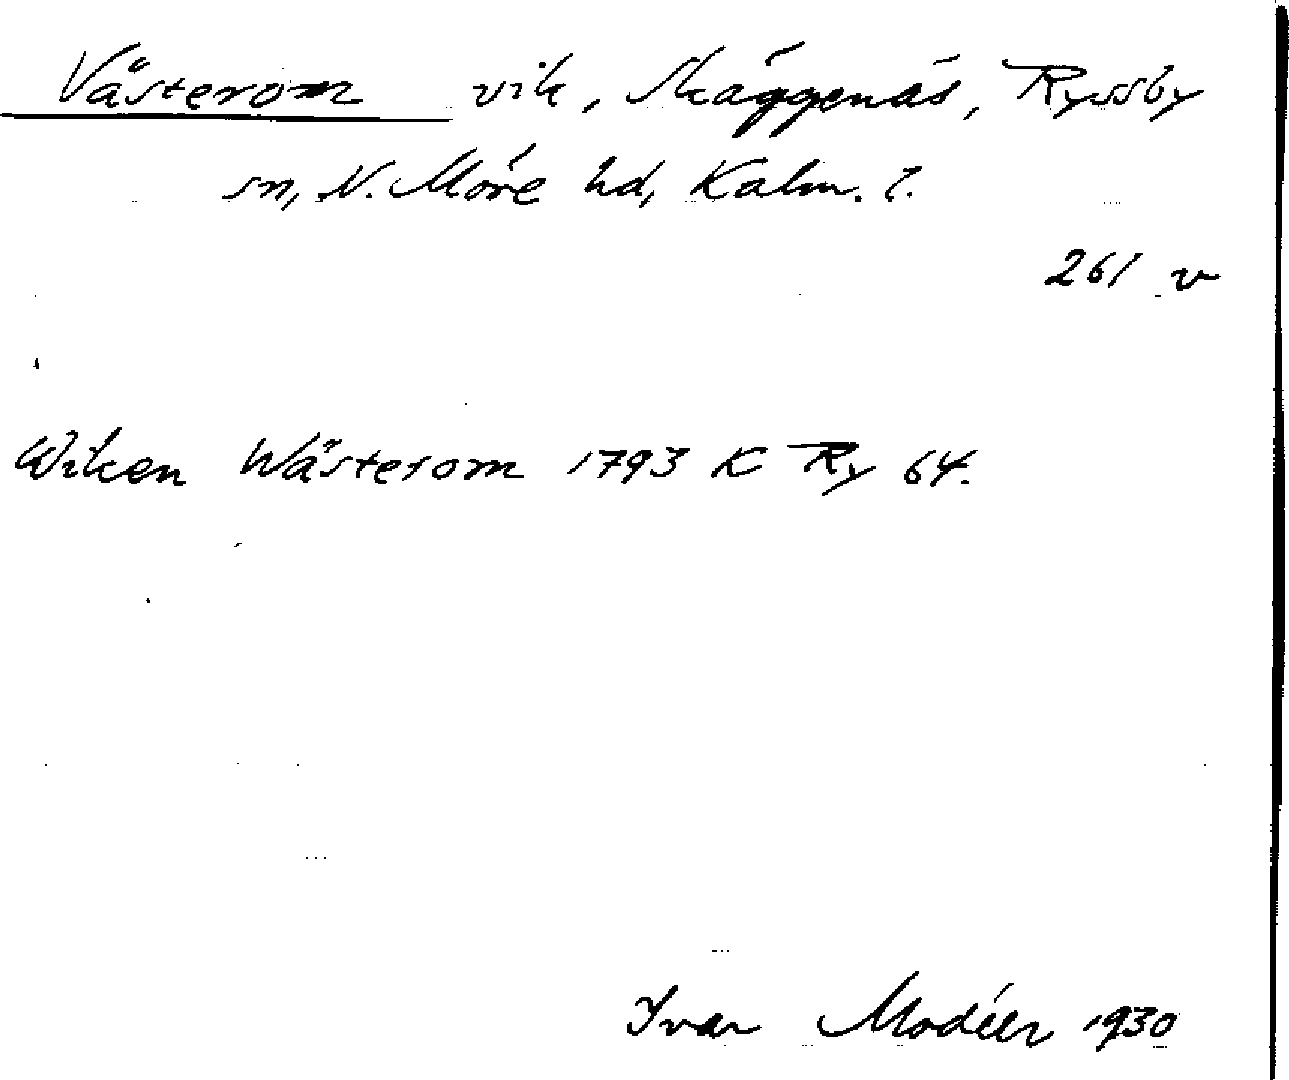 Västerom vik, Skäggenäs, Ryssby
sn, N. Möre hd, Kalm. l.
261 v
Wiken Wästerom 1793 K Ry 64.
Ivar Modéer 1930